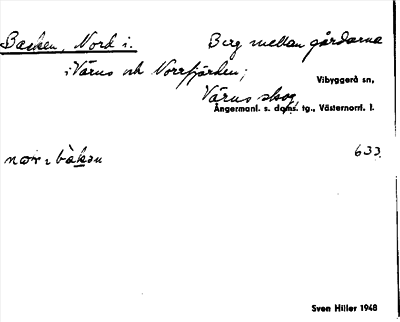 Backen, Nord i. Berg mellan gårdarna
i Värns och Norrfjärden;
Vibyggerå sn,
Värns skog
Ångermanl. s. doms. tg., Västernorrl. l.
633
Sven Hiller 1948